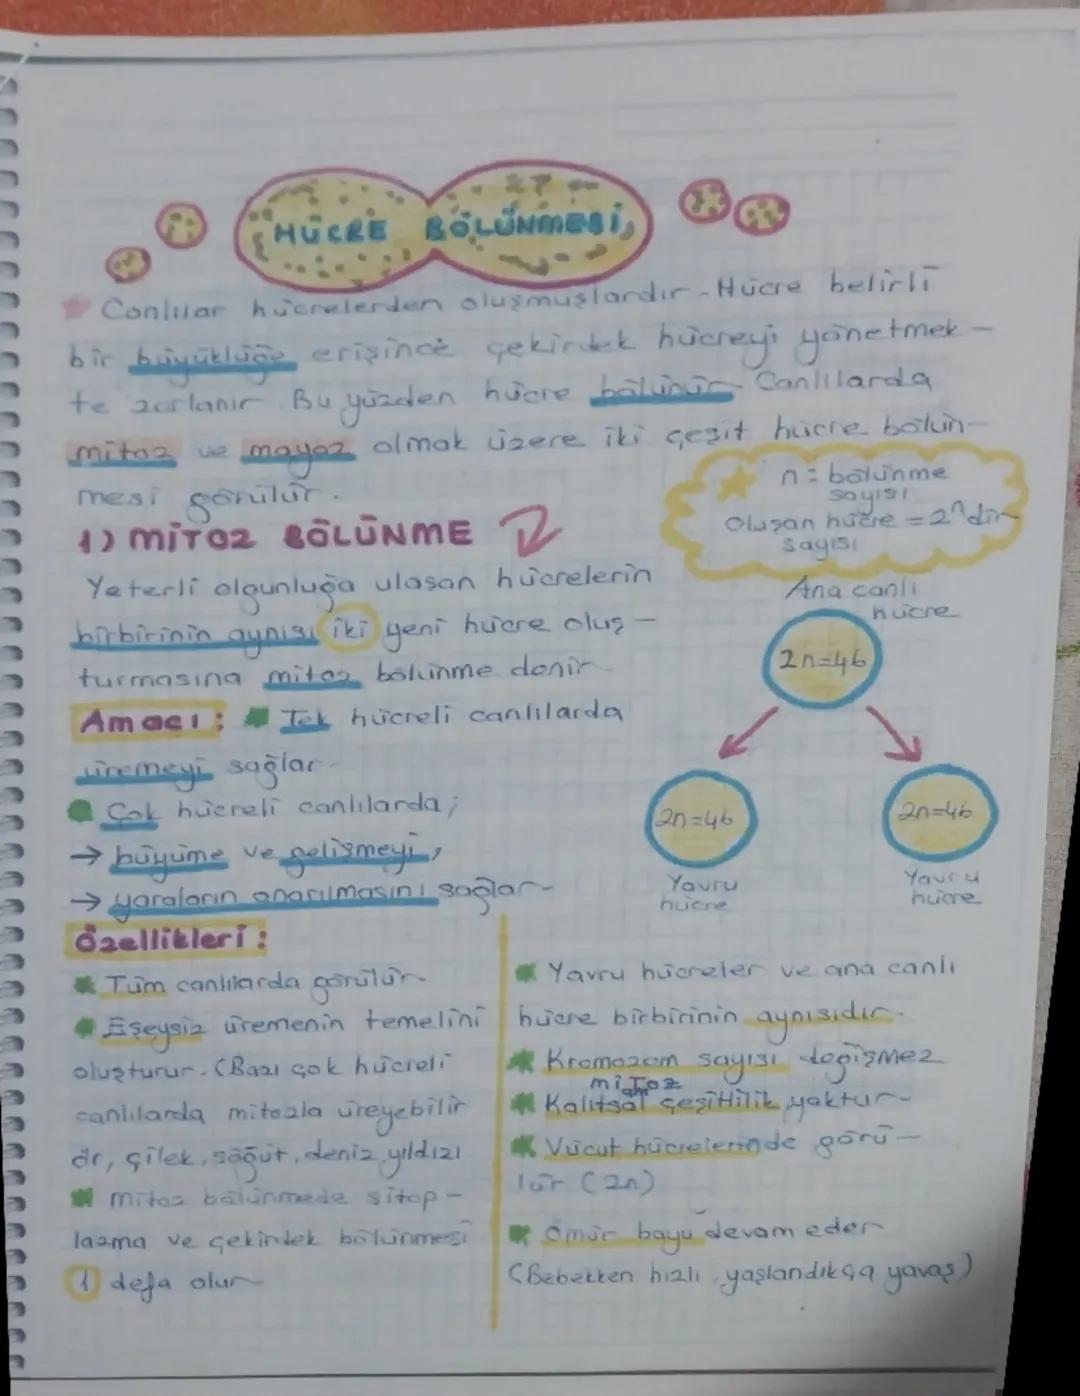 HÜCRE BÖLÜNMESİ
Canlılar hücrelerden oluşmuşlardır. Hücre belirli
bir büyüklüğe erişince çekirdek hücreyi yönetmek-
te zorlanır. Bu yüzden hücre bölünür. Canlılarda
mitoz ve mayoz olmak üzere iki çeşit hücre bölün-
mesi görülür.
n = bölünme
sayısı
Oluşan hücre = 2ⁿ dir
sayısı
1) MİTOZ BÖLÜNME
Yeterli olgunluğa ulaşan hücrelerin
birbirinin aynısı iki yeni hücre oluş-
turmasına mitoz bölünme denir.
Amacı: Tek hücreli canlılarda
üremeyi sağlar.
Çok hücreli canlılarda;
→ büyüme ve gelişmeyi,
→ yaraların onarılmasını sağlar.
Ana canlı
hücre
2n=46
2n=46
2n=46
Yavru
hücre
Yavru
hücre
Özellikleri:
Tüm canlılarda görülür.
Eşeysiz üremenin temelini
oluşturur. (Bazı çok hücreli
canlılarda mitozla üreyebilir
ör, çilek, söğüt, deniz yıldızı
Mitoz bölünmede sitop-
lazma ve çekirdek bölünmesi
1 defa olur.
Yavru hücreler ve ana canlı
hücre birbirinin aynısıdır.
Kromozom sayısı değişmez
mitoz
Kalıtsal çeşitlilik yoktur.
Vücut hücrelerinde görü-
lür (2n)
Ömür boyu devam eder
(Bebekken hızlı, yaşlandıkça yavaş)